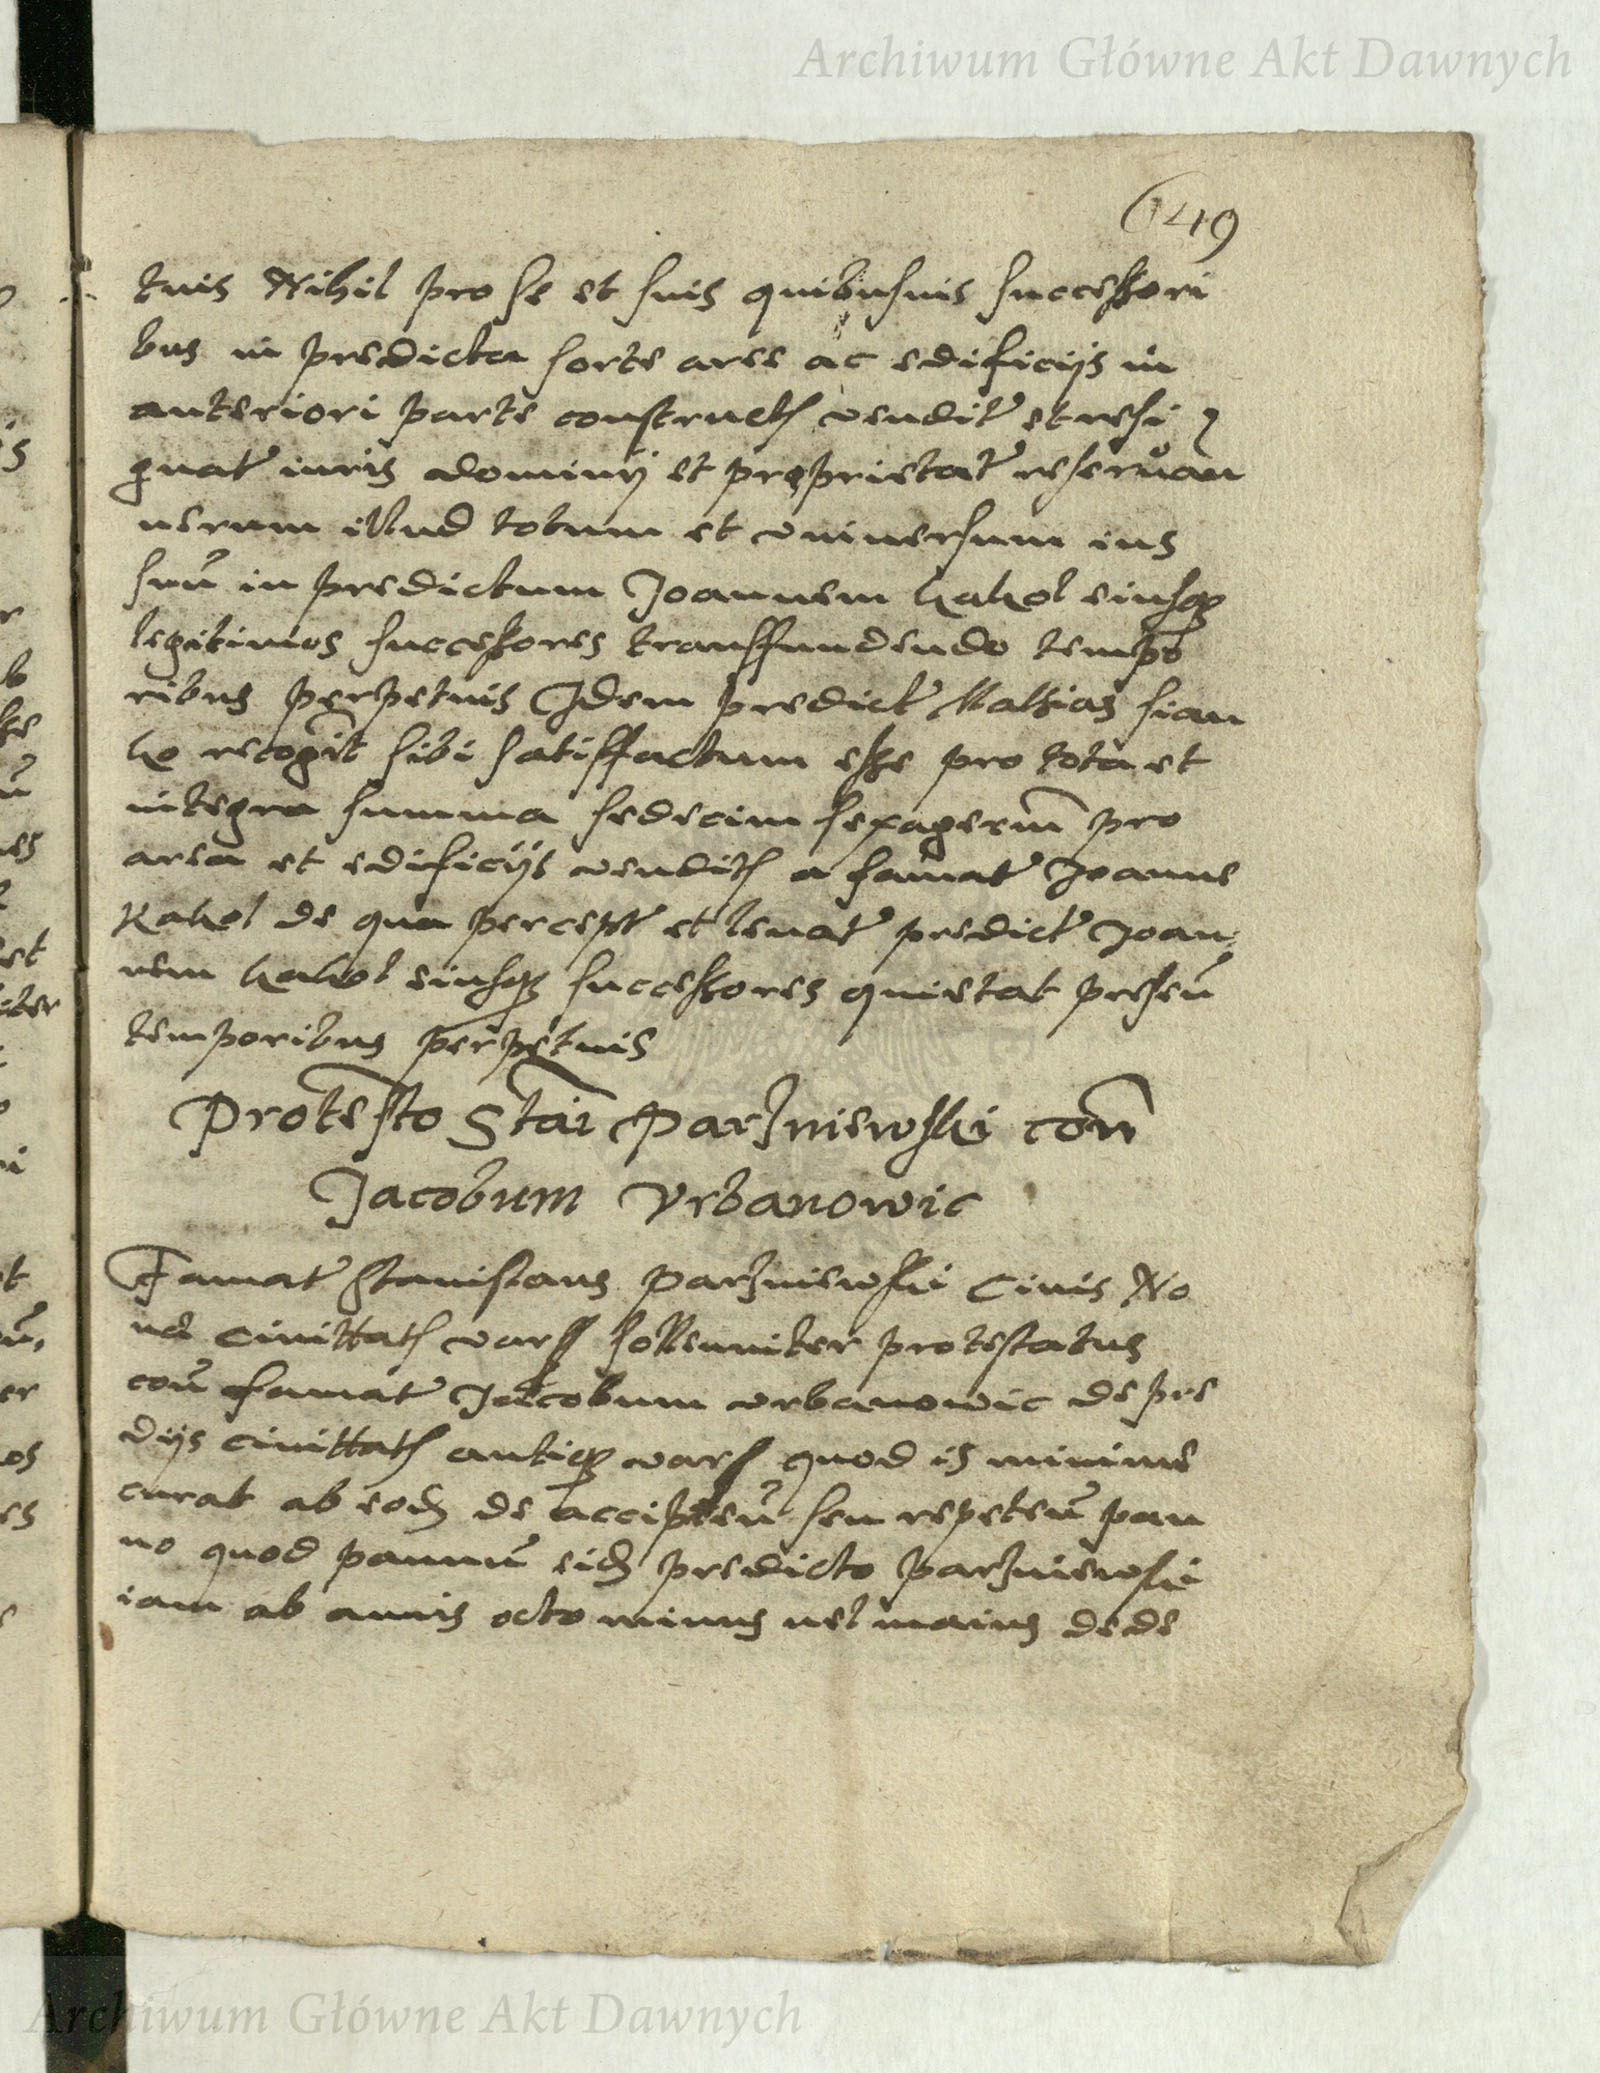 Archiwum Główne Akt Dawnych
149
tuis Nihil pro se et suis quibusuis successori
bus in predicta sorte aree ac edificijs in
anteriori parte constructis vendit et resi
gnat iuris dominij et proprietat reseruan
uerum illud totum et vniuersum ius
suū in predictum Joannem kakol eiusq
legitimos successores transffundendo tempo
ribus perpetuis Idem predict Mathias sian
ko recognit sibi satisffactum esse pro tota et
integra summa sedecim sexagenar pro
area et edificijs venditis a famat Joanne
kakol de qua percept et leuat predict Joan
nem kakol eiusq successores quietat presen
temporibus perpetuis
Protestō Stai Parzniewski con
Jacobum Vrbanowic
Famat Stanislaus Parzniewski Ciuis No
ue Ciuittatis vars sollenniter protestatus
con famat Jacobum vrbanowic de pre
dijs ciuittatis antiq vars quod is minime
curat ab eod de accipien seu repeten pan
no quod pannū eid predicto parzniewski
iam ab annis octo minus uel maius dede
Archiwum Główne Akt Dawnych